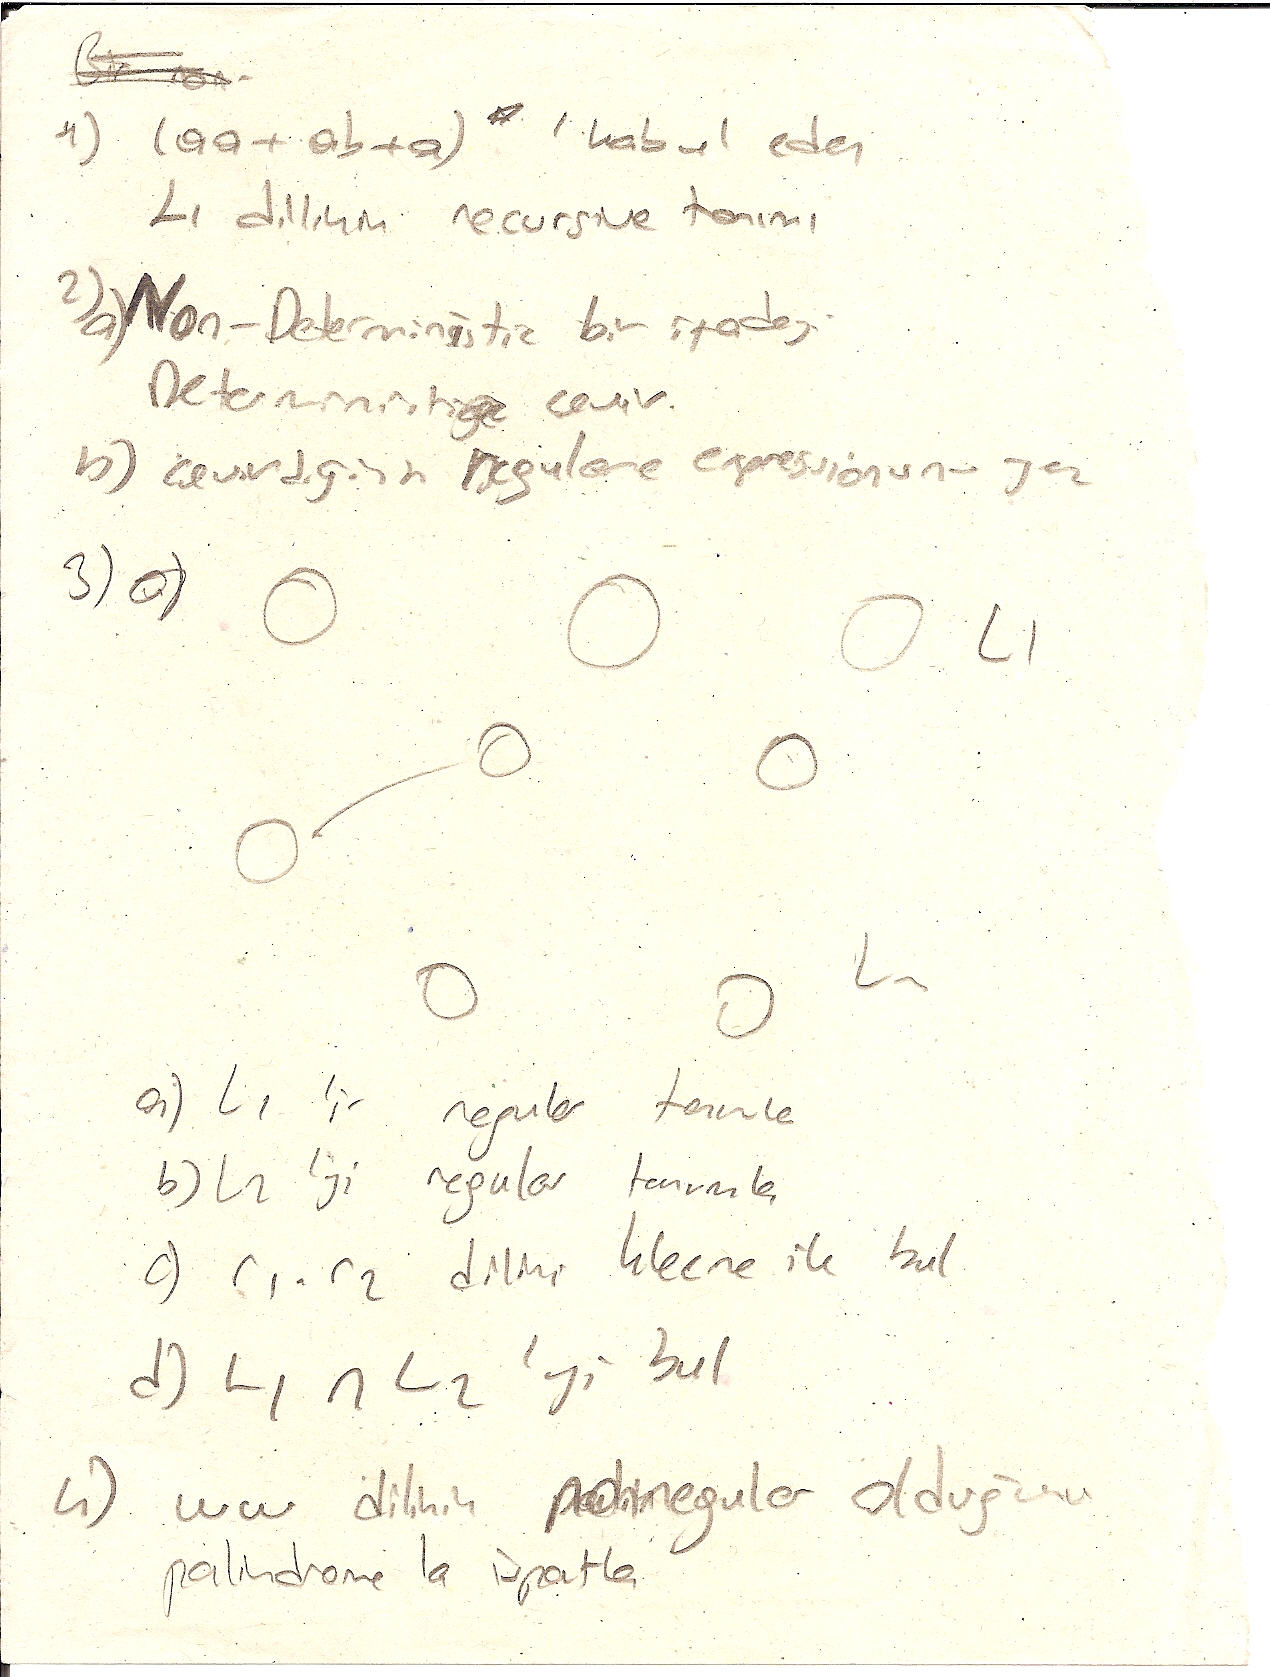 1) (aa+ab+a)* 'ı kabul eden
L1 dilinin recursive tanımı
2) a) Non-Deterministic bir ifadeyi
Deterministiğe çevir.
b) çevirdiğinin regulare expressionunu yaz
3) a)
L1
L2
a) L1 'i regular tanımla
b) L2 'yi regular tanımla
c) r1.r2 dilini kleene ile bul
d) L1 ∩ L2 'yi bul
4) ww dilinin nonregular olduğunu
palindrome la ispatla